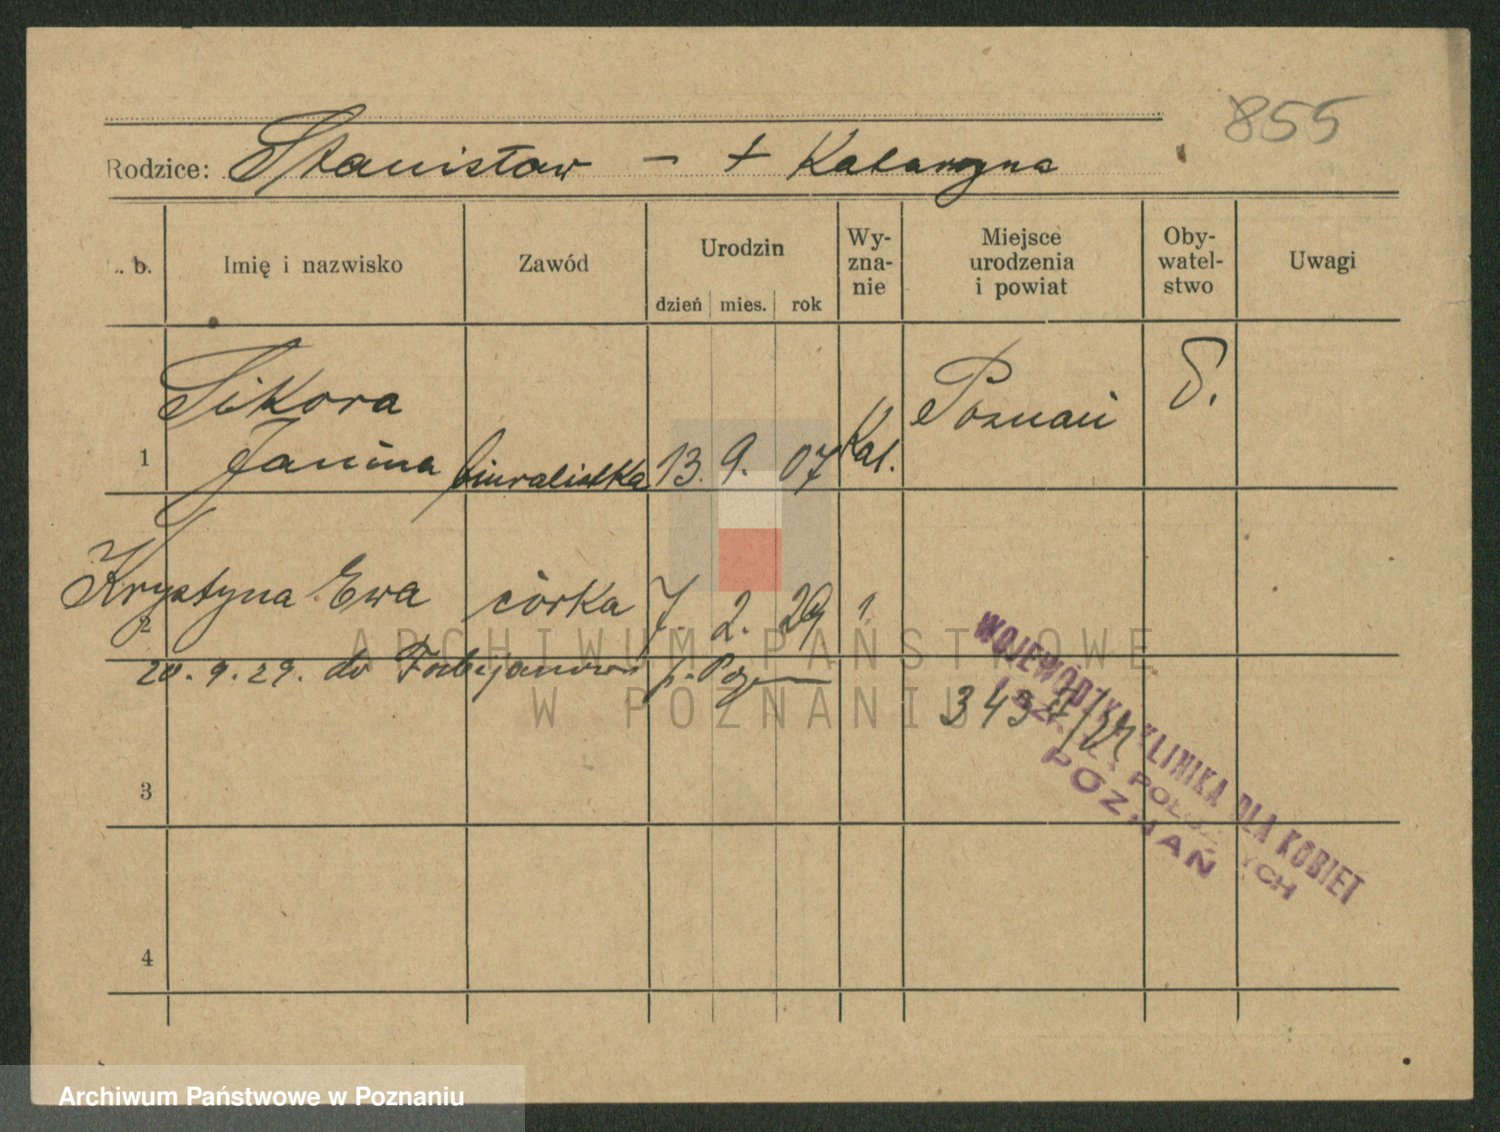 855
Rodzice: Stanisław – + Katarzyna
L. b. Imię i nazwisko Zawód Urodzin dzień mies. rok Wy-zna-nie Miejsce urodzenia i powiat Oby-watel-stwo Uwagi
Sikora Poznań
1 Janina biuralistka 13. 9. 07 Kat.
2 Krystyna Ewa córka 7. 2. 29 "
20.9.29. do Fabijanowo p. Poz
3
4
WOJEWÓDZKA KLINIKA DLA KOBIET
POŁOŻNYCH
POZNAŃ
ARCHIWUM PAŃSTWOWE
W POZNANIU
Archiwum Państwowe w Poznaniu